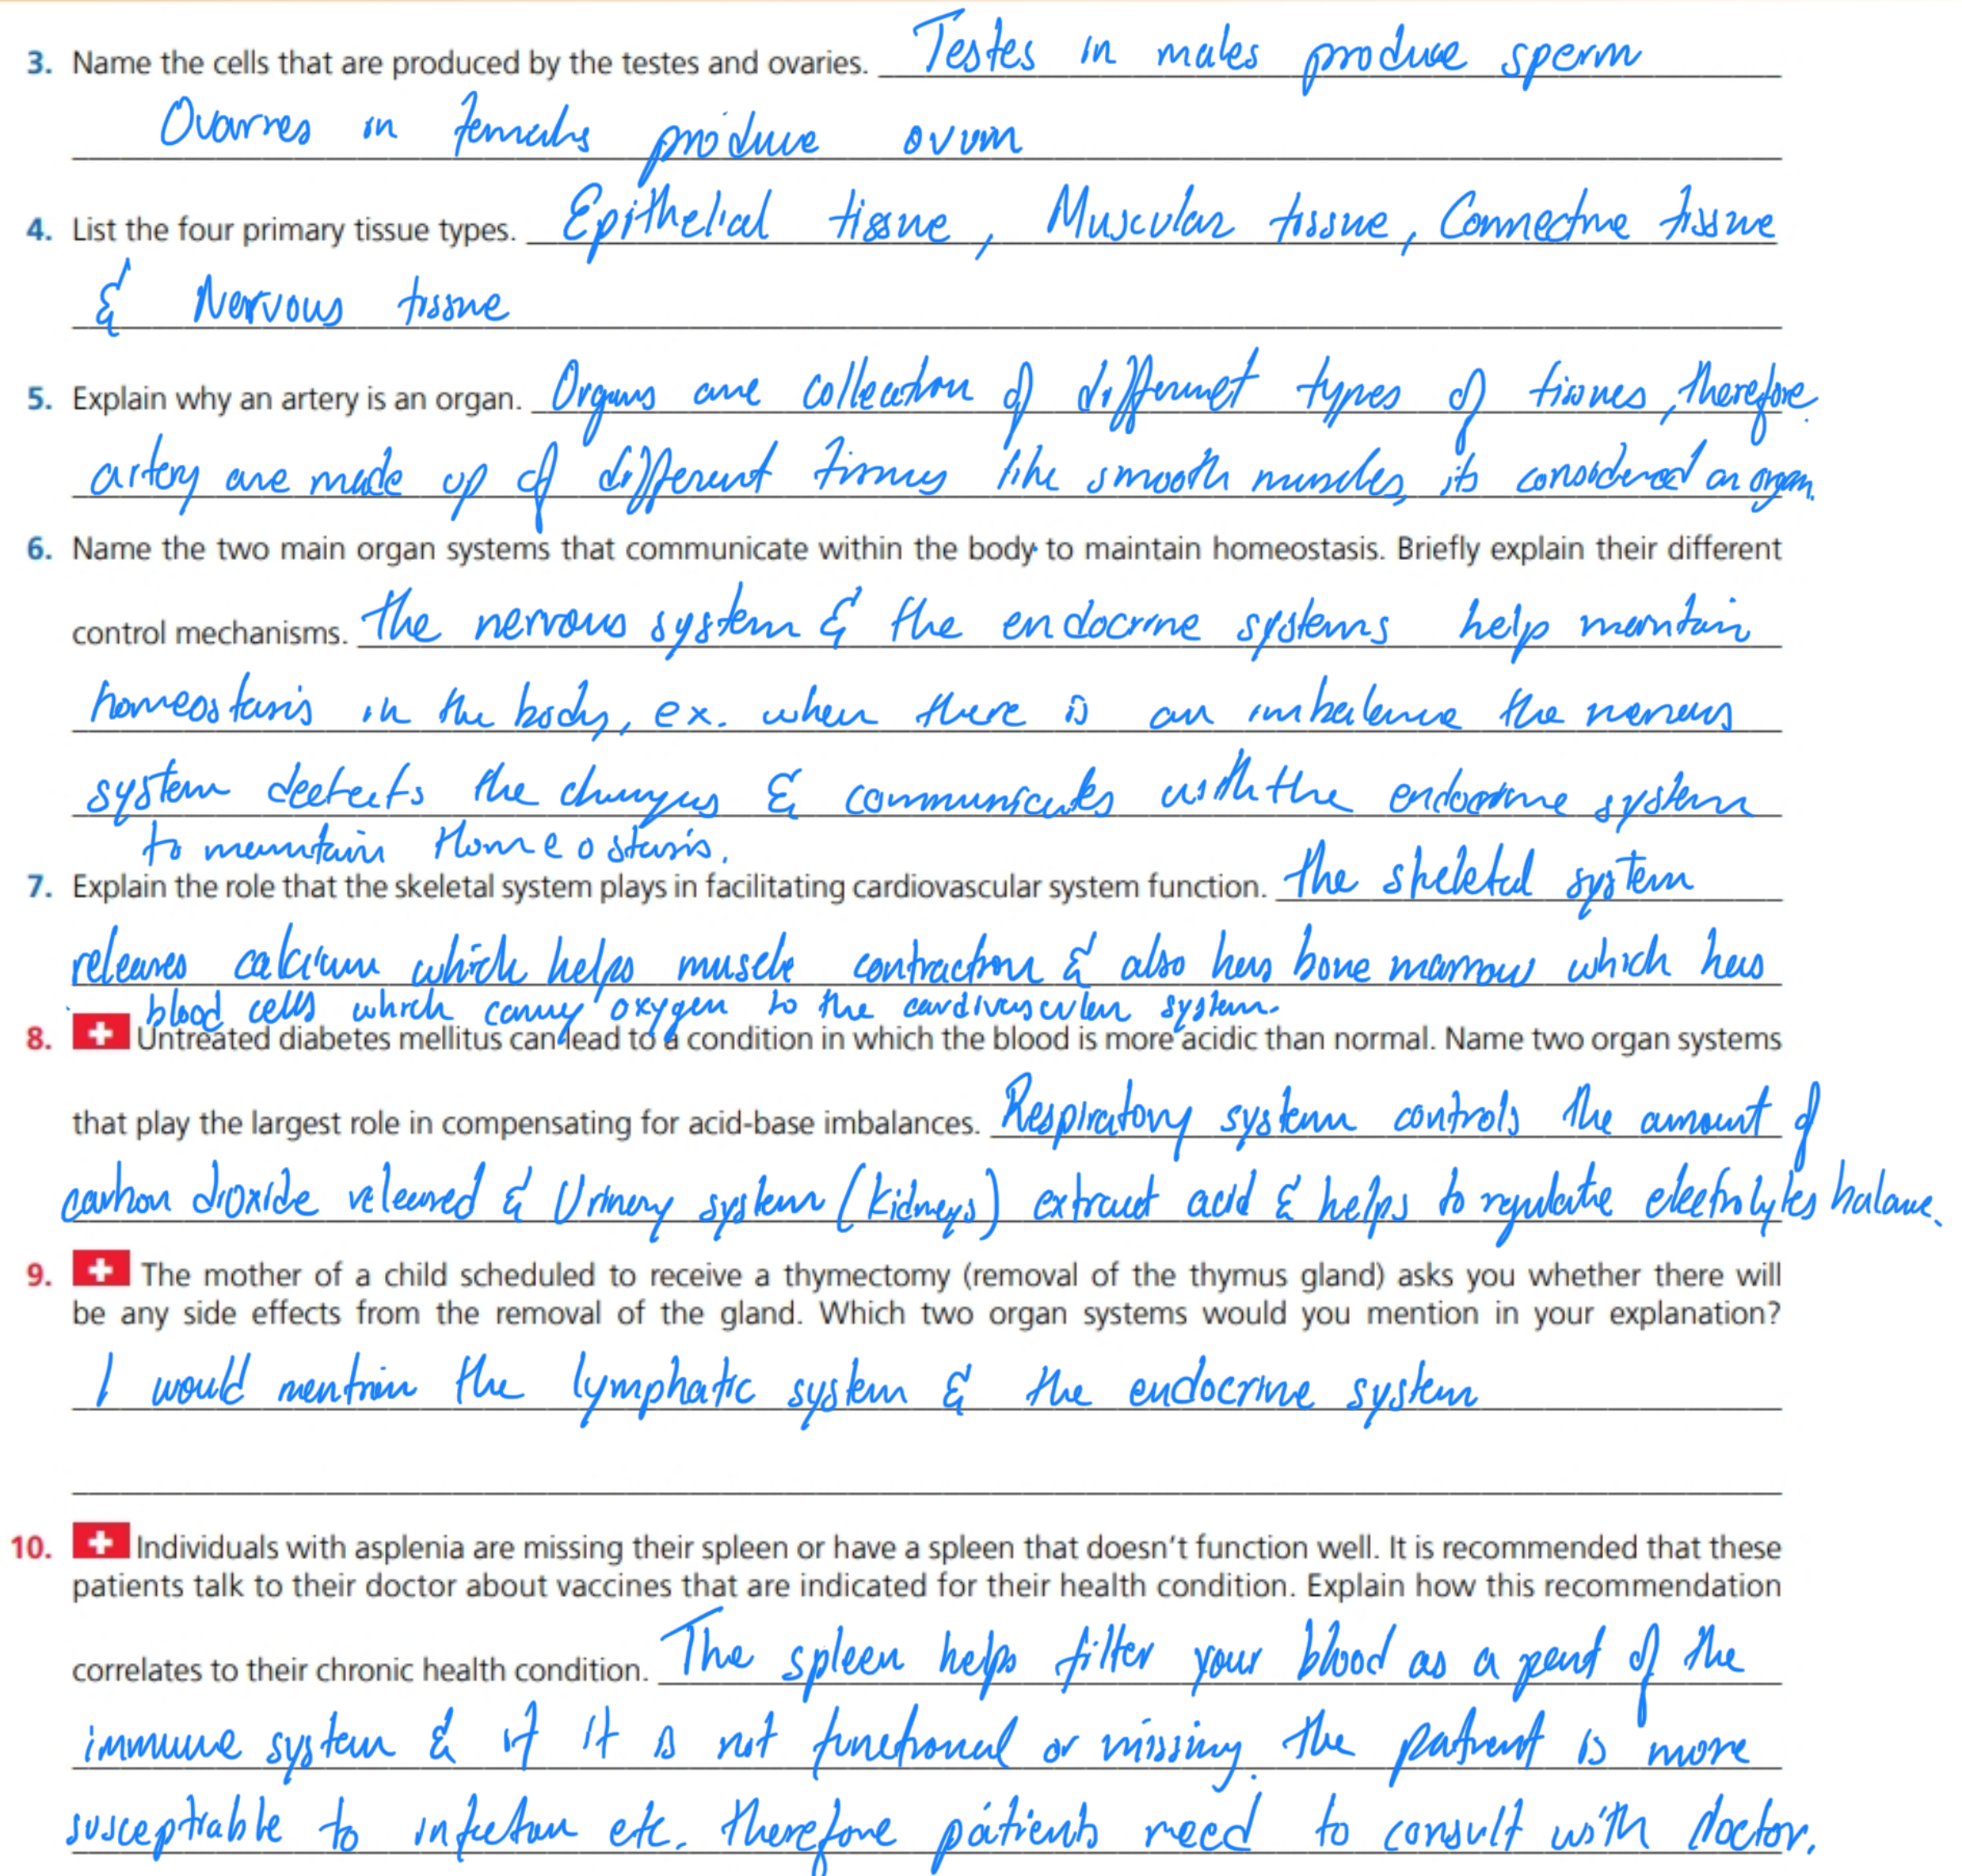 3. Name the cells that are produced by the testes and ovaries. Testes in males produce sperm
Ovarres in females produce ovum
4. List the four primary tissue types. Epithelial tissue, Muscular tissue, Connective tissue
& Nervous tissue
5. Explain why an artery is an organ. Organs are collection of differnet types of tissues, therefore
artery are made up of different tissues like smooth muscles, its considered an organ.
6. Name the two main organ systems that communicate within the body to maintain homeostasis. Briefly explain their different
control mechanisms. The nervous system & the endocrine systems help maintain
homeostasis in the body, ex. when there is an imbalance the nervous
system deetects the changes & communicates with the endocrine system
to maintain Homeostasis.
7. Explain the role that the skeletal system plays in facilitating cardiovascular system function. The skeletal system
releases calcium which helps muscle contraction & also has bone marrow which has
blood cells which carry oxygen to the cardivascular system.
8. Untreated diabetes mellitus can lead to a condition in which the blood is more acidic than normal. Name two organ systems
that play the largest role in compensating for acid-base imbalances. Respiratory system controls the amount of
carbon dioxide released & Urinery system (kidneys) extract acid & helps to regulate electrolytes balance.
9. The mother of a child scheduled to receive a thymectomy (removal of the thymus gland) asks you whether there will
be any side effects from the removal of the gland. Which two organ systems would you mention in your explanation?
I would mention the lymphatic system & the endocrine system
10. Individuals with asplenia are missing their spleen or have a spleen that doesn't function well. It is recommended that these
patients talk to their doctor about vaccines that are indicated for their health condition. Explain how this recommendation
correlates to their chronic health condition. The spleen helps filter your blood as a part of the
immune system & if it is not functional or missing. the patient is more
susceptiable to infection etc. therefore patients need to consult with doctor.